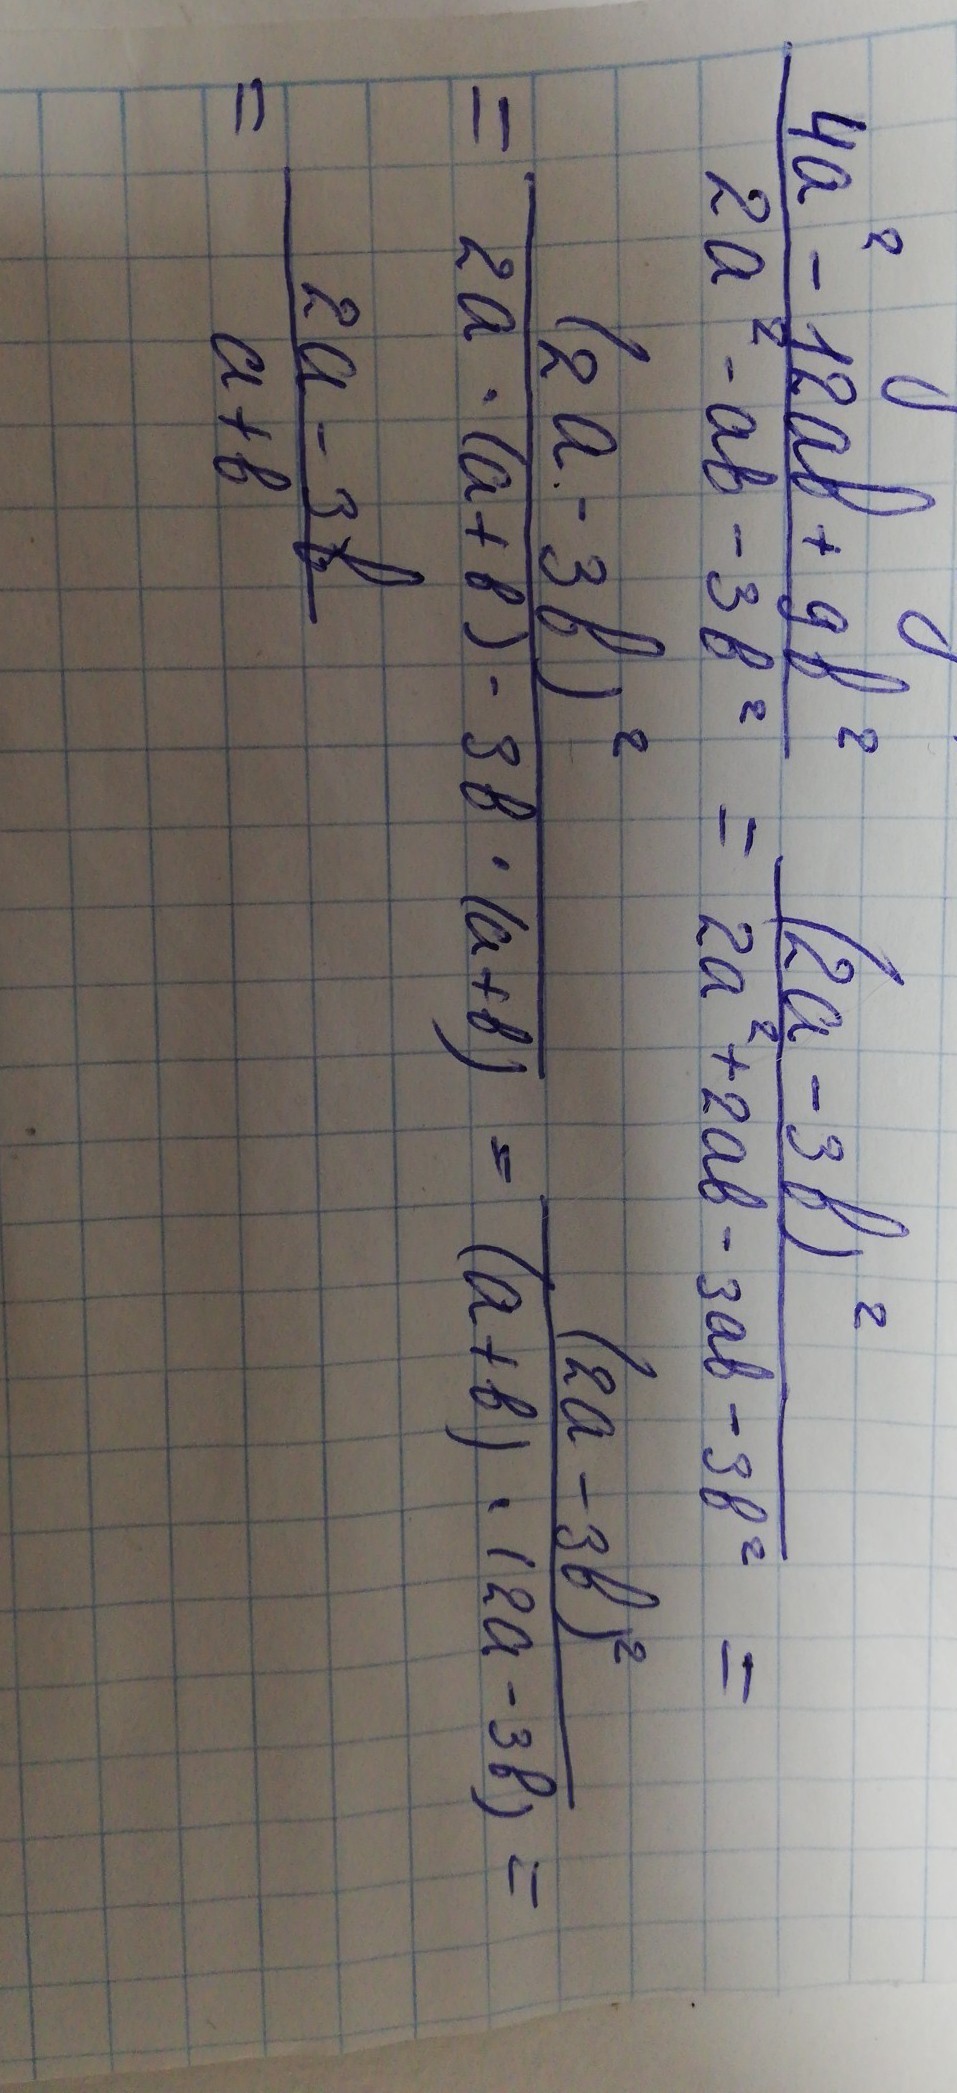 4a² - 12ab + 9b² / 2a² - ab - 3b² = (2a - 3b)² / 2a² + 2ab - 3ab - 3b² =
= (2a - 3b)² / 2a · (a + b) - 3b · (a + b) = (2a - 3b)² / (a + b) · (2a - 3b) =
= 2a - 3b / a + b